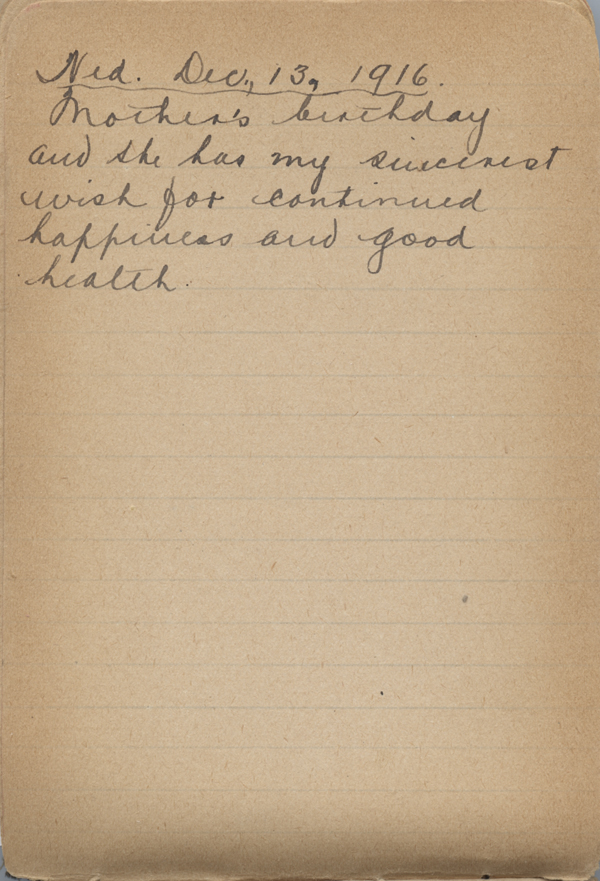 Ned. Dec., 13, 1916.
Mother's birthday
and she has my sincerest
wish for continued
happiness and good
health.